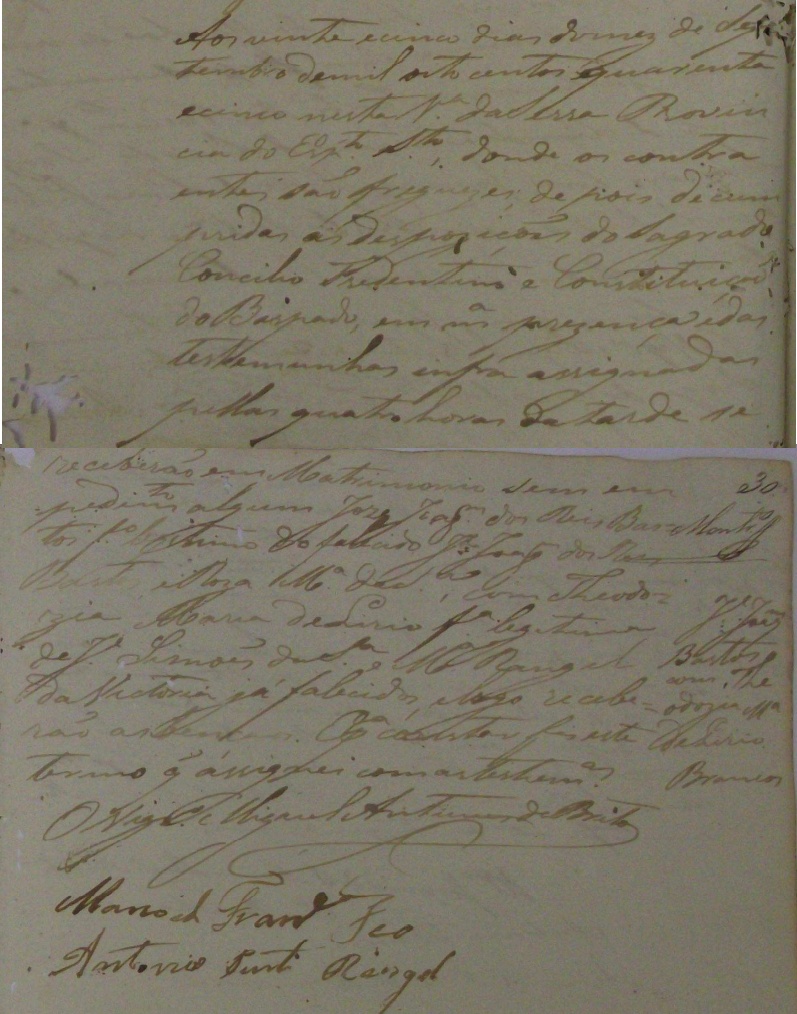 Aos vinte ecinco dias domez de Se
tembro demil oito centos equarenta
ecinco nesta V.ª da Serra Provin
cia do Esp.to S.to, donde os contra
entes são freguezes, de pois de cum
pridas as despozicoẽs do Sagrado
Concilio Tredentino e Constituiçoẽs
do Bispado, em m.ª prezença edas
testemunhas infra assignadas
pellas quatro horas da tarde se
receberão em Matrimonio sem em
pedim.to algum Joze Joaq.m dos Reis Bas
tos f.º legitimo do falecido J.e Joaq.m dos Reis
Bastos, e Roza M.ª da com Theodo=
zia Maria de Lirio f.ª legitima
de J.e Simoẽs da S.ª e M.ª Rangel
da Victoria já falecidos, elogo recebe=
rão as bencoẽs. E p.ª constar fis este
termo q̃ assignei com as testem.as
O Vig.º Miguel Antunes de Brito
Manoel Fran.co Feo
Antonio Rangel
30
J.e Joaq.m
Bastos
com The
odozia M.ª
de Lirio
Brancos